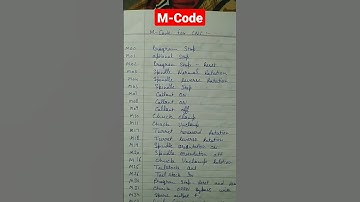 M-Code
M-Code for CNC :-
M00 Program Stop
M01 optional stop
M02 Program Stop - Reset
M03 Spindle Normal Rotation
M04 Spindle Reverse Rotation
M05 Spindle Stop
M07 Collant on
M08 Collant on
M09 Collant off
M10 Chuck clamp
M11 Chuck Unclamp
M17 Turret forward Rotation
M18 Turret reverse Rotation
M19 Spindle orientation on
M20 Spindle orientation off
Chuck Unclamp Rotation
M25 Tailstock out
M26 Tailstock In
M30 Program Stop - Reset and
M31 Chuck with
output